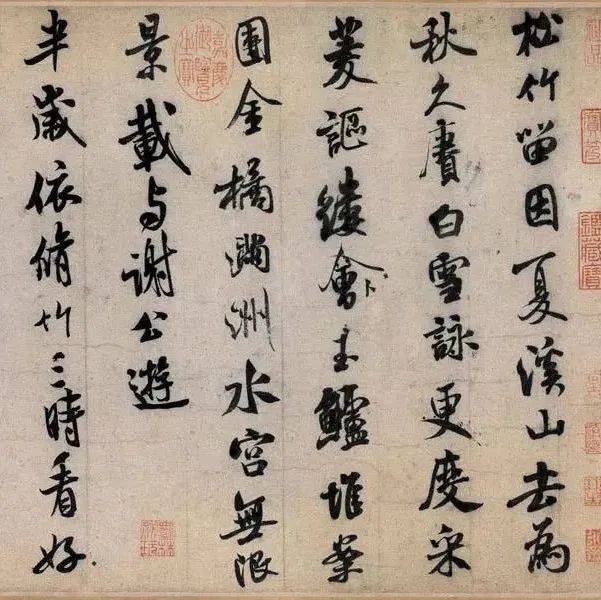 松竹留因夏溪山去為
秋久賡白雪詠更度采
菱謳縷會玉鱸堆案
團金橘滿洲水宮無限
景載与謝公遊
半歲依脩竹三時看好
嘉慶御覽之寶